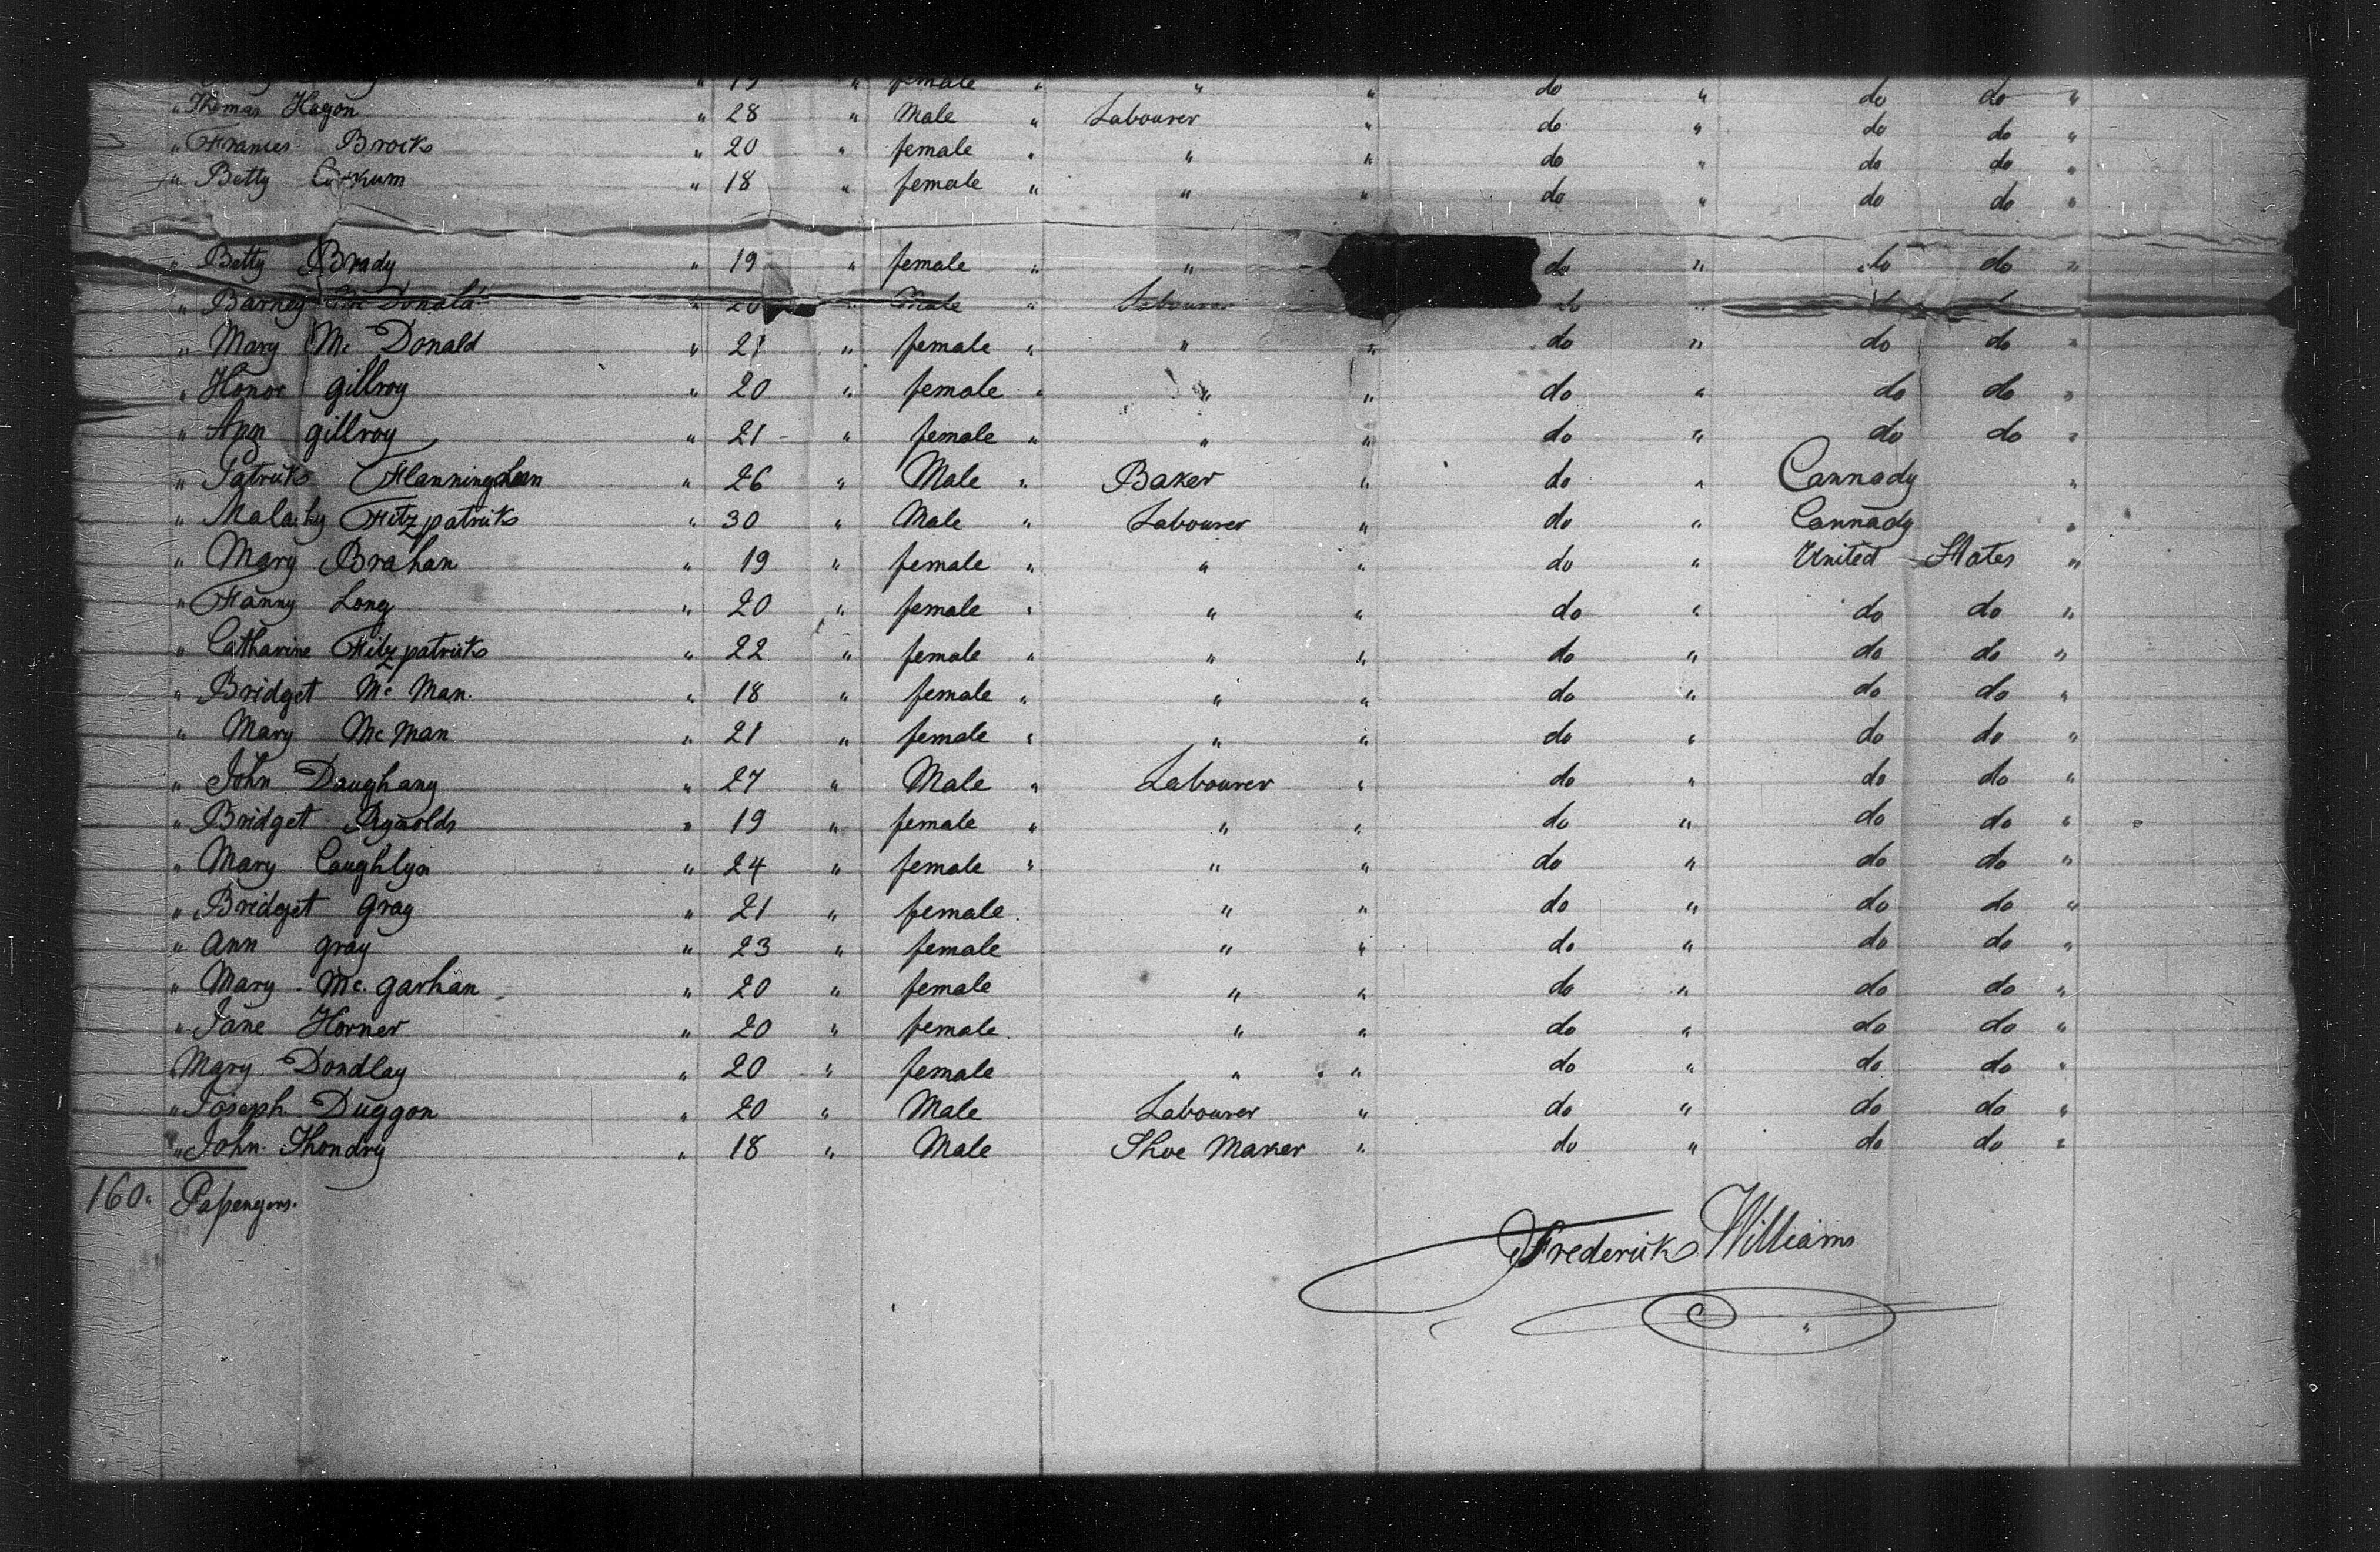 " 19 " female " " " do " do do "
" Thomas Hagon " 28 " Male " Labourer " do " do do "
" Frances Brooks " 20 " female " " " do " do do "
" Betty Corkum " 18 " female " " " do " do do "
" Betty Brady " 19 " female " " do " do do "
" Barney Mc Donald " 20 " Male " Labourer do " do do
" Mary Mc Donald " 21 " female " " " do " do do "
" Honor gillroy " 20 " female " " " do " do do "
" Ann gillroy " 21 " female " " " do " do do "
" Patrick " 26 " Male " Baker " do " Cannady "
" Malachy Fitzpatrick " 30 " Male " Labourer " do " Cannady "
" Mary Brahan " 19 " female " " " do " United States "
" Fanny Long " 20 " female " " " do " do do "
" Catharine Fitzpatrick " 22 " female " " " do " do do "
" Bridget Mc Man. " 18 " female " " " do " do do "
" Mary Mc Man " 21 " female " " " do " do do "
" John Daughany " 27 " Male " Labourer " do " do do "
" Bridget Rynolds " 19 " female " " " do " do do "
" Mary Caughlyn " 24 " female " " " do " do do "
" Bridget Gray " 21 " female " " do " do do "
" Ann gray " 23 " female " " do " do do "
" Mary Mc. garhan " 20 " female " " do " do do "
" Jane Horner " 20 " female " " do " do do "
Mary Dondlay " 20 " female " " do " do do "
" Joseph Duggon " 20 " Male Labourer " do " do do "
" John Thondry " 18 " Male Shoe Maker " do " do do "
160 " Passengers.
Frederick Williams